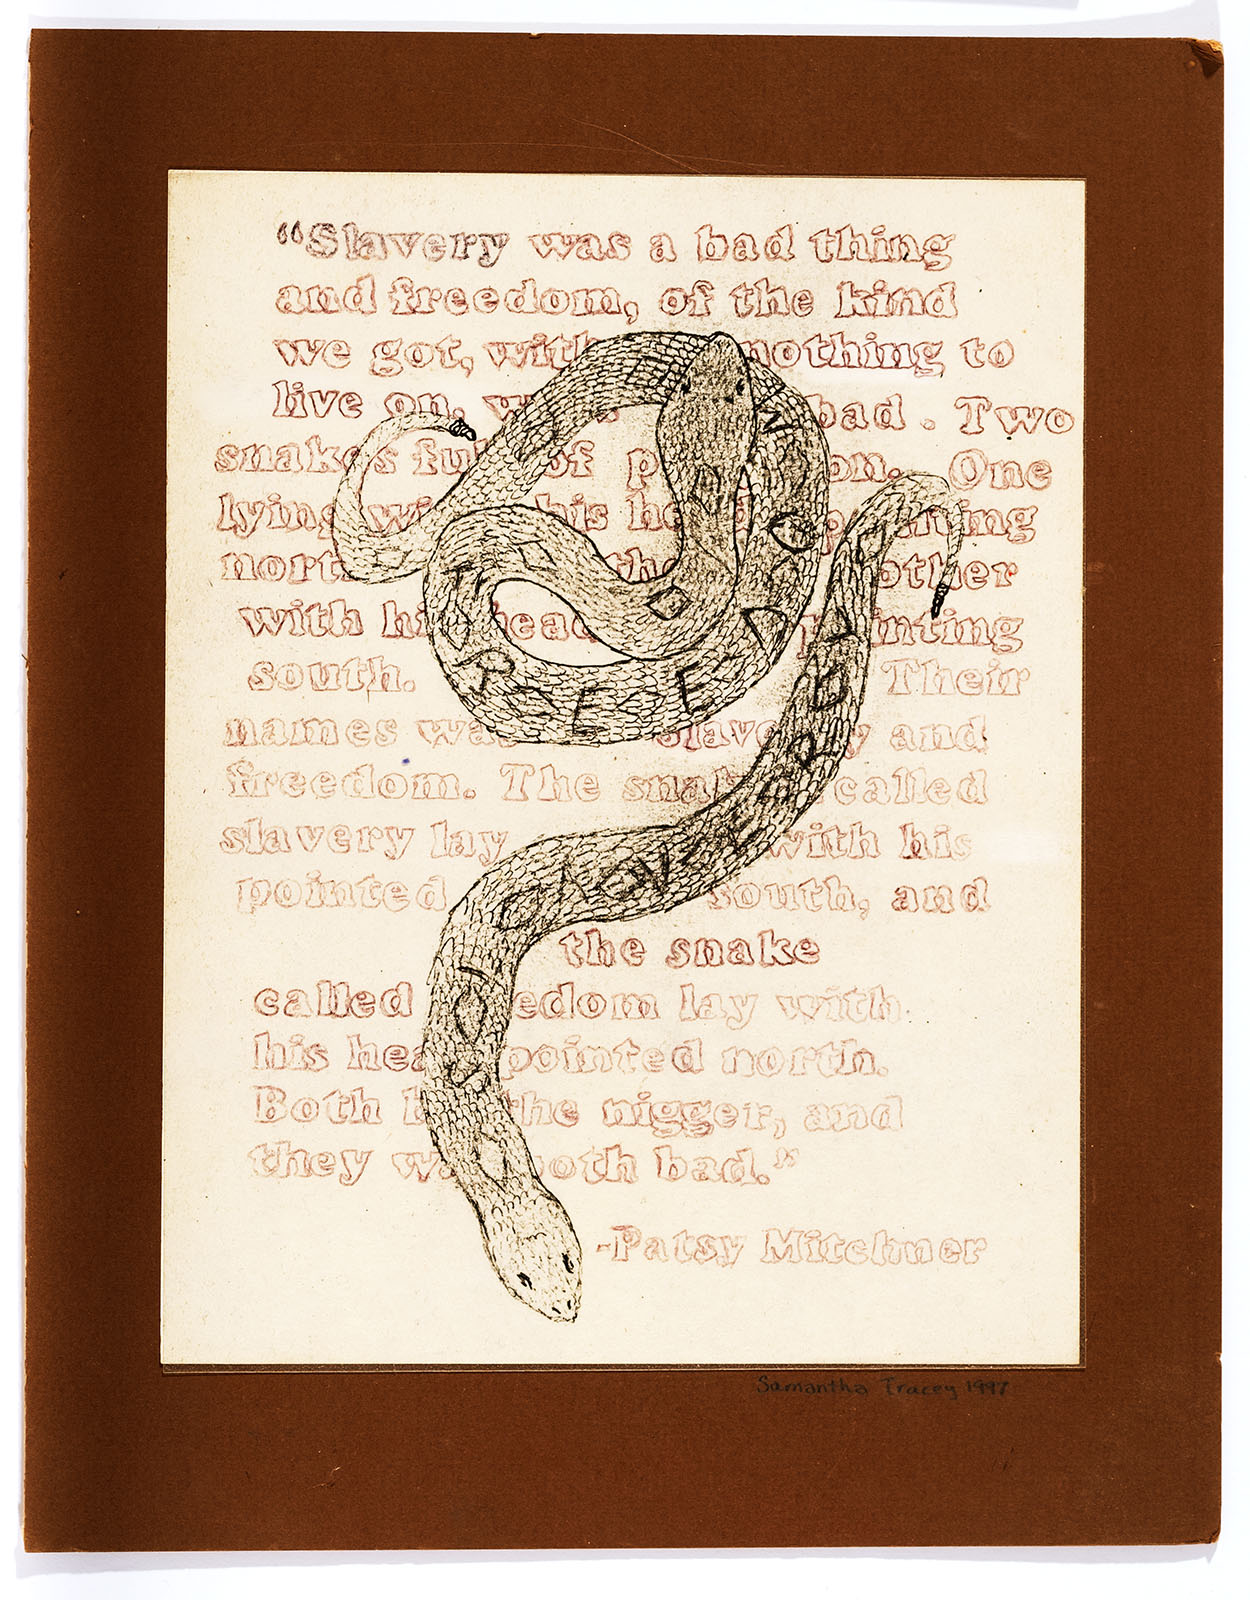 “Slavery was a bad thing
and freedom, of the kind
we got, with nothing to
live on, was bad. Two
snakes full of poison. One
lying with his head pointing
north, the other
with his head pointing
south. Their
names was slavery and
freedom. The snake called
slavery lay with his
pointed south, and
the snake
called freedom lay with
his head pointed north.
Both bit the nigger, and
they was both bad.”
-Patsy Mitchner
Samantha Tracey 1997